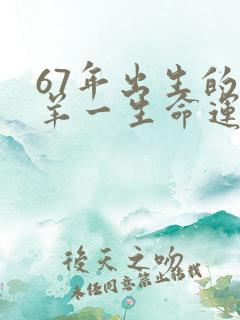 67年出生的
羊一生命運
後天之吻
未经同意禁止转载